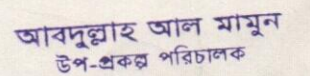 আবদুল্লাহ আল মামুন
উপ-প্রকল্প পরিচালক